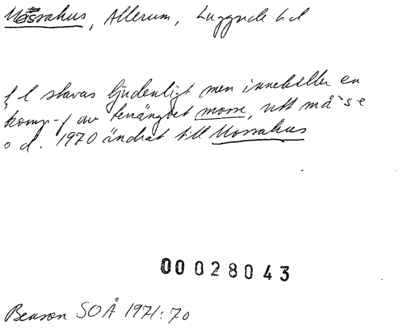 Mossahus, Allerum, Luggude hd
f l stavas ljudenligt men innehåller en
komp-f av terrängbet mosse, utt må`se
o d. 1970 ändrat till Mossahus
00028043
Benson SOÅ 1971:70